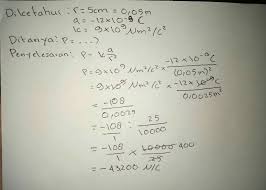 Diketahui : r = 5cm = 0,05m
a = -12×10⁻⁹ C
k = 9×10⁹ Nm²/c²
Ditanya : P = ...?
Penyelesaian : P = k a/r²
P = 9×10⁹ Nm²/c² × -12×10⁻⁹ C/(0,05m)²
= 9×10⁹ Nm²/c² × -12×10⁻⁹ C/0,0025m²
= -108/0,0025
= -108/1 : 25/10000
= -108/1 × 10000/25 400
= -43200 N/C